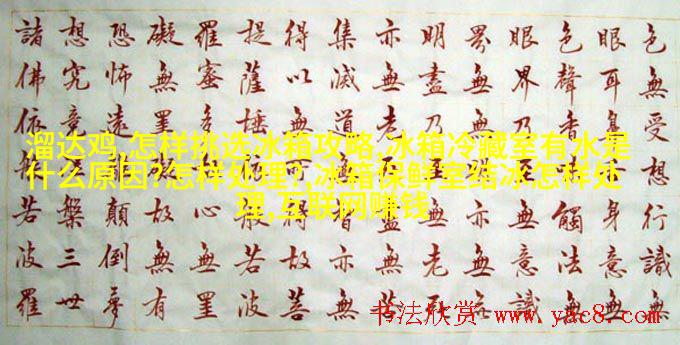 色無受想行識無
眼耳身意無
色聲香觸法無
眼界乃無意識
界無無亦無
明盡乃無老死
亦無老盡無苦
集滅道智亦無
得以無得故菩
提薩埵般若波
羅蜜多心無罣
礙無罣故無有
恐怖遠顛倒夢
想究竟槃三世
諸佛依般若波羅
溜达鸡,怎样挑选冰箱攻略,冰箱冷藏室有水是
什么原因?怎样处理?,冰箱保鲜室结冰怎样处
理,互联网赚钱
书法欣赏 www.yac8.com